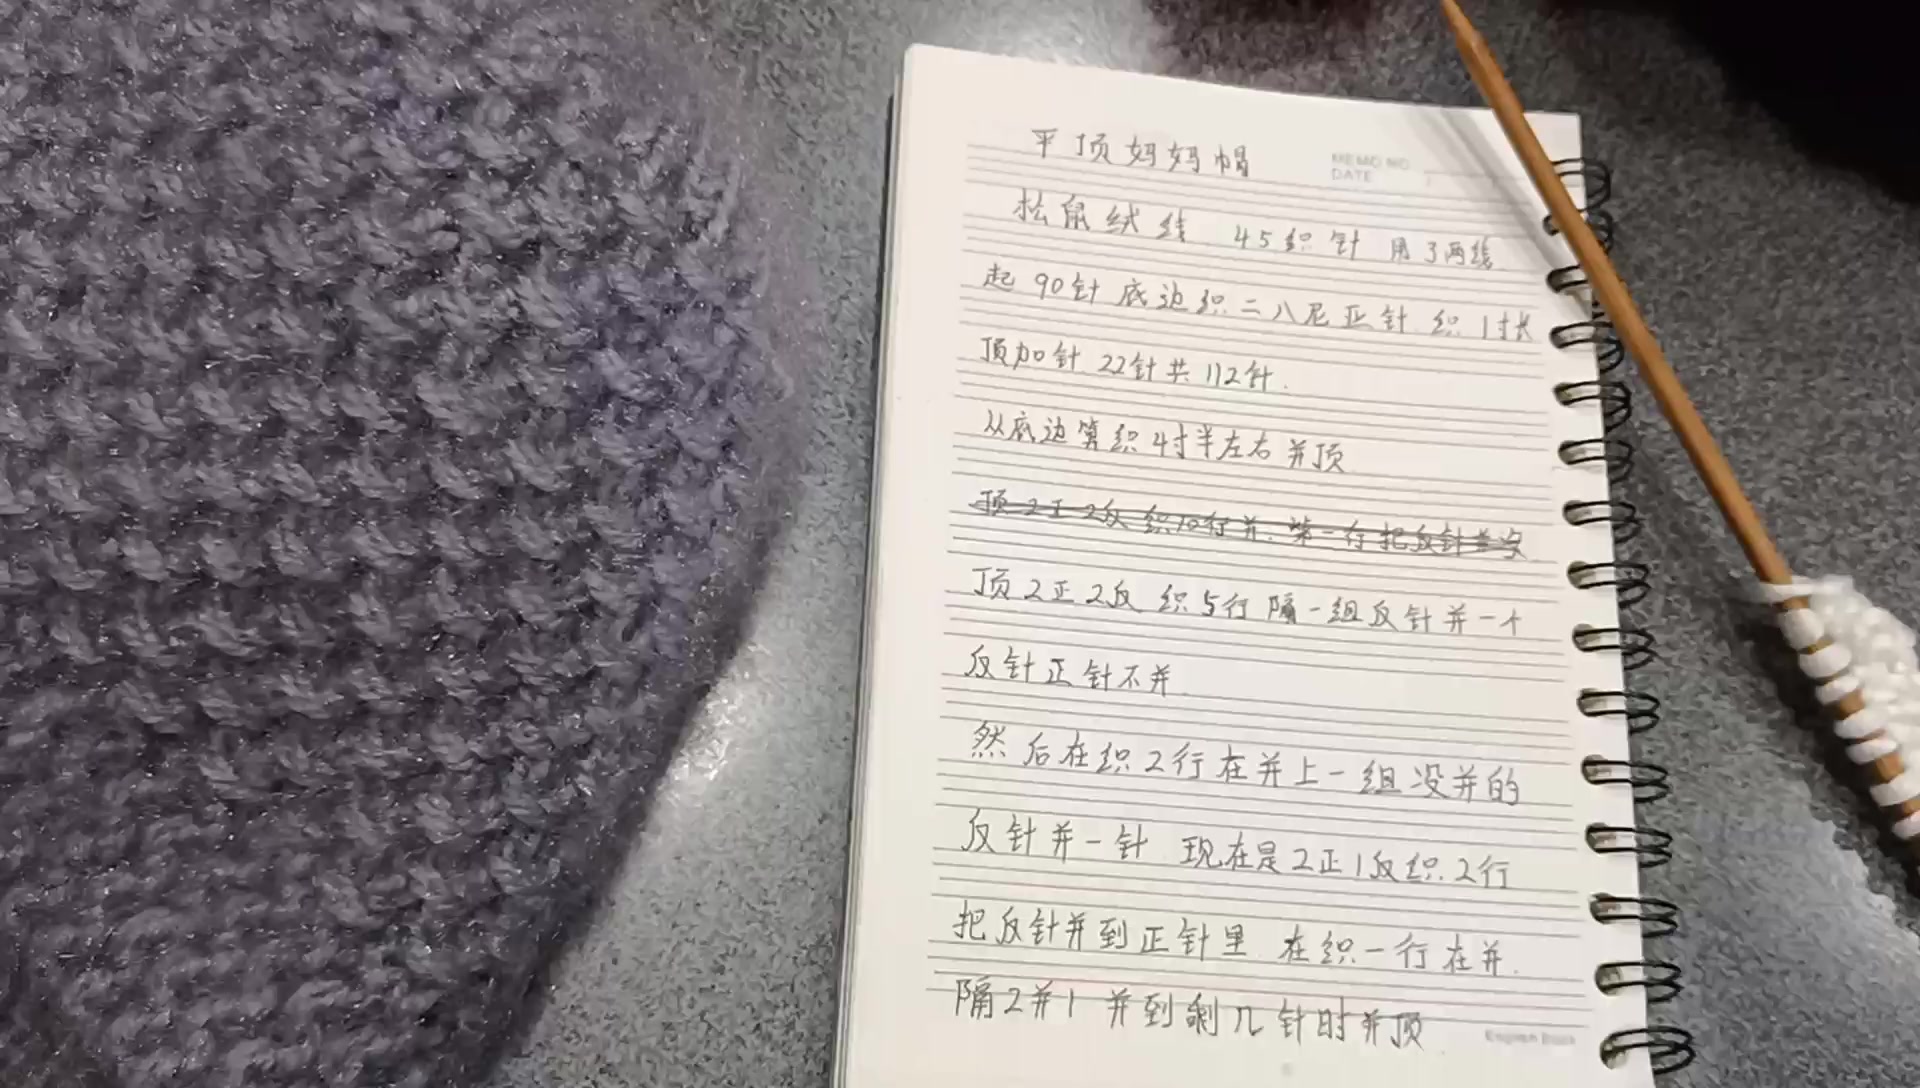 平顶妈妈帽
MEMO NO
DATE
松鼠绒线 45织针 用了两线
起90针 底边织二八尼亚针 织1寸长
顶加针22针共112针.
从底边算织4寸半左右并顶
顶2正2反 织10行并. 第一行把反针并没
顶2正2反 织5行 隔一组反针并一个
反针正针不并
然后在织2行在并上一组没并的
反针并一针 现在是2正1反织2行
把反针并到正针里 在织一行在并.
隔2并1 并到剩几针时并顶
English Book